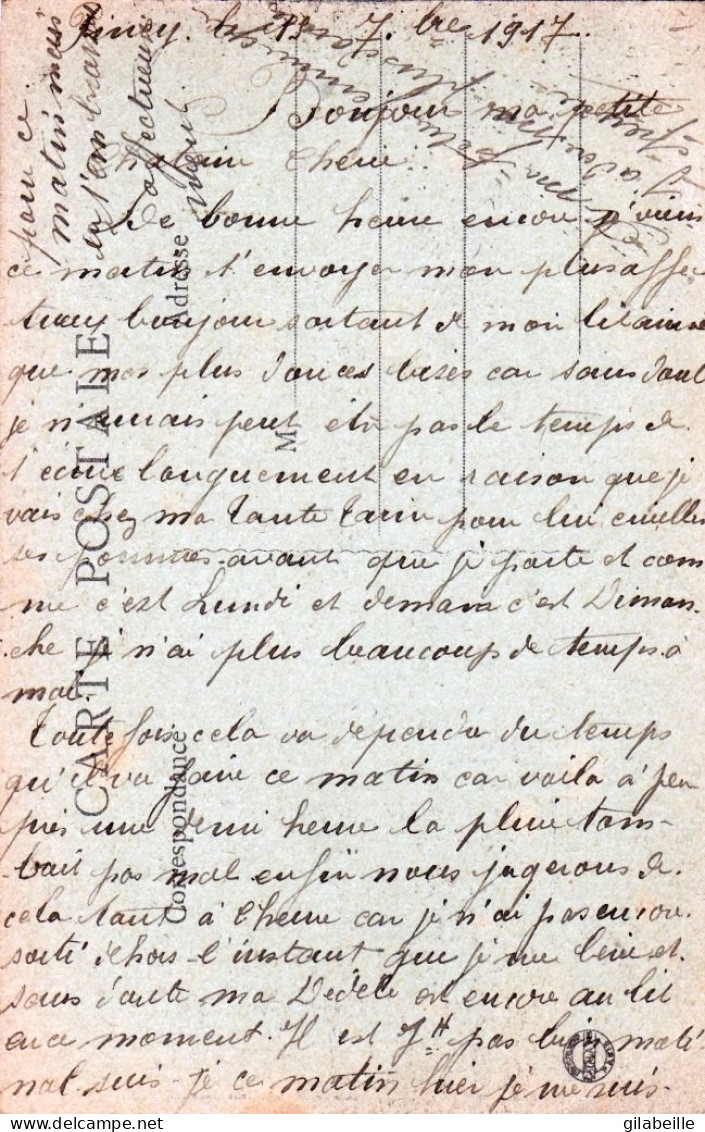 le 15 7.bre 1917.
Bonjour ma petite
Chérie.
De bonne heure encore j'viens
ce matin t'envoyer mon plus affec
tueux bonjour sortant de mon lit ainsi
que mes plus douces bises car sans dout
je n'aurais peut être pas le temps de
t'écrire longuement en raison que je
vais chez ma Tante pour lui cueillir
ses pommes avant que je parte et com
me c'est Lundi et demain c'est Diman
che je n'ai plus beaucoup de temps à
moi.
Toutefois cela va dépendre du temps
qu'il va faire ce matin car voila à peu
près une demi heure la pluie tom-
bait pas mal enfin nous jugerons de
cela tant à l'heure car je n'ai pas encore
sorti dehors l'instant que je me lève et
sans doute ma Dédèle est encore au lit
en ce moment. Il est 7H pas bien mati
nal suis-je ce matin hier je me suis
pour ce
matin mais
en t'embrassant
affectueuse
ment.
ma petite
CARTE POSTALE
Correspondance
Adresse
M
gilabeille